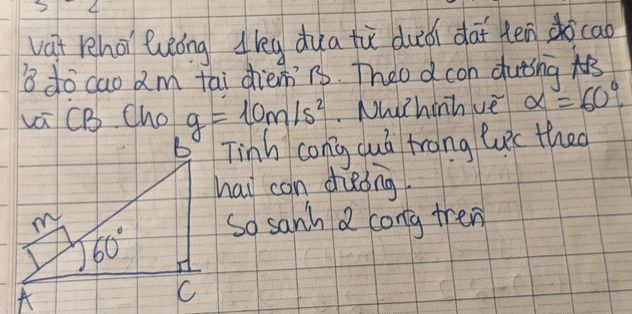 Vật khối lượng 1kg đưa từ dưới đất lên độ cao
ở độ cao 2m tại điểm B. Theo 2 con đường AB
và CB. Cho g = 10m/s². Như hình vẽ α = 60°.
Tính công của trọng lực theo
hai con đường.
So sánh 2 công trên
B
m
60°
A
C